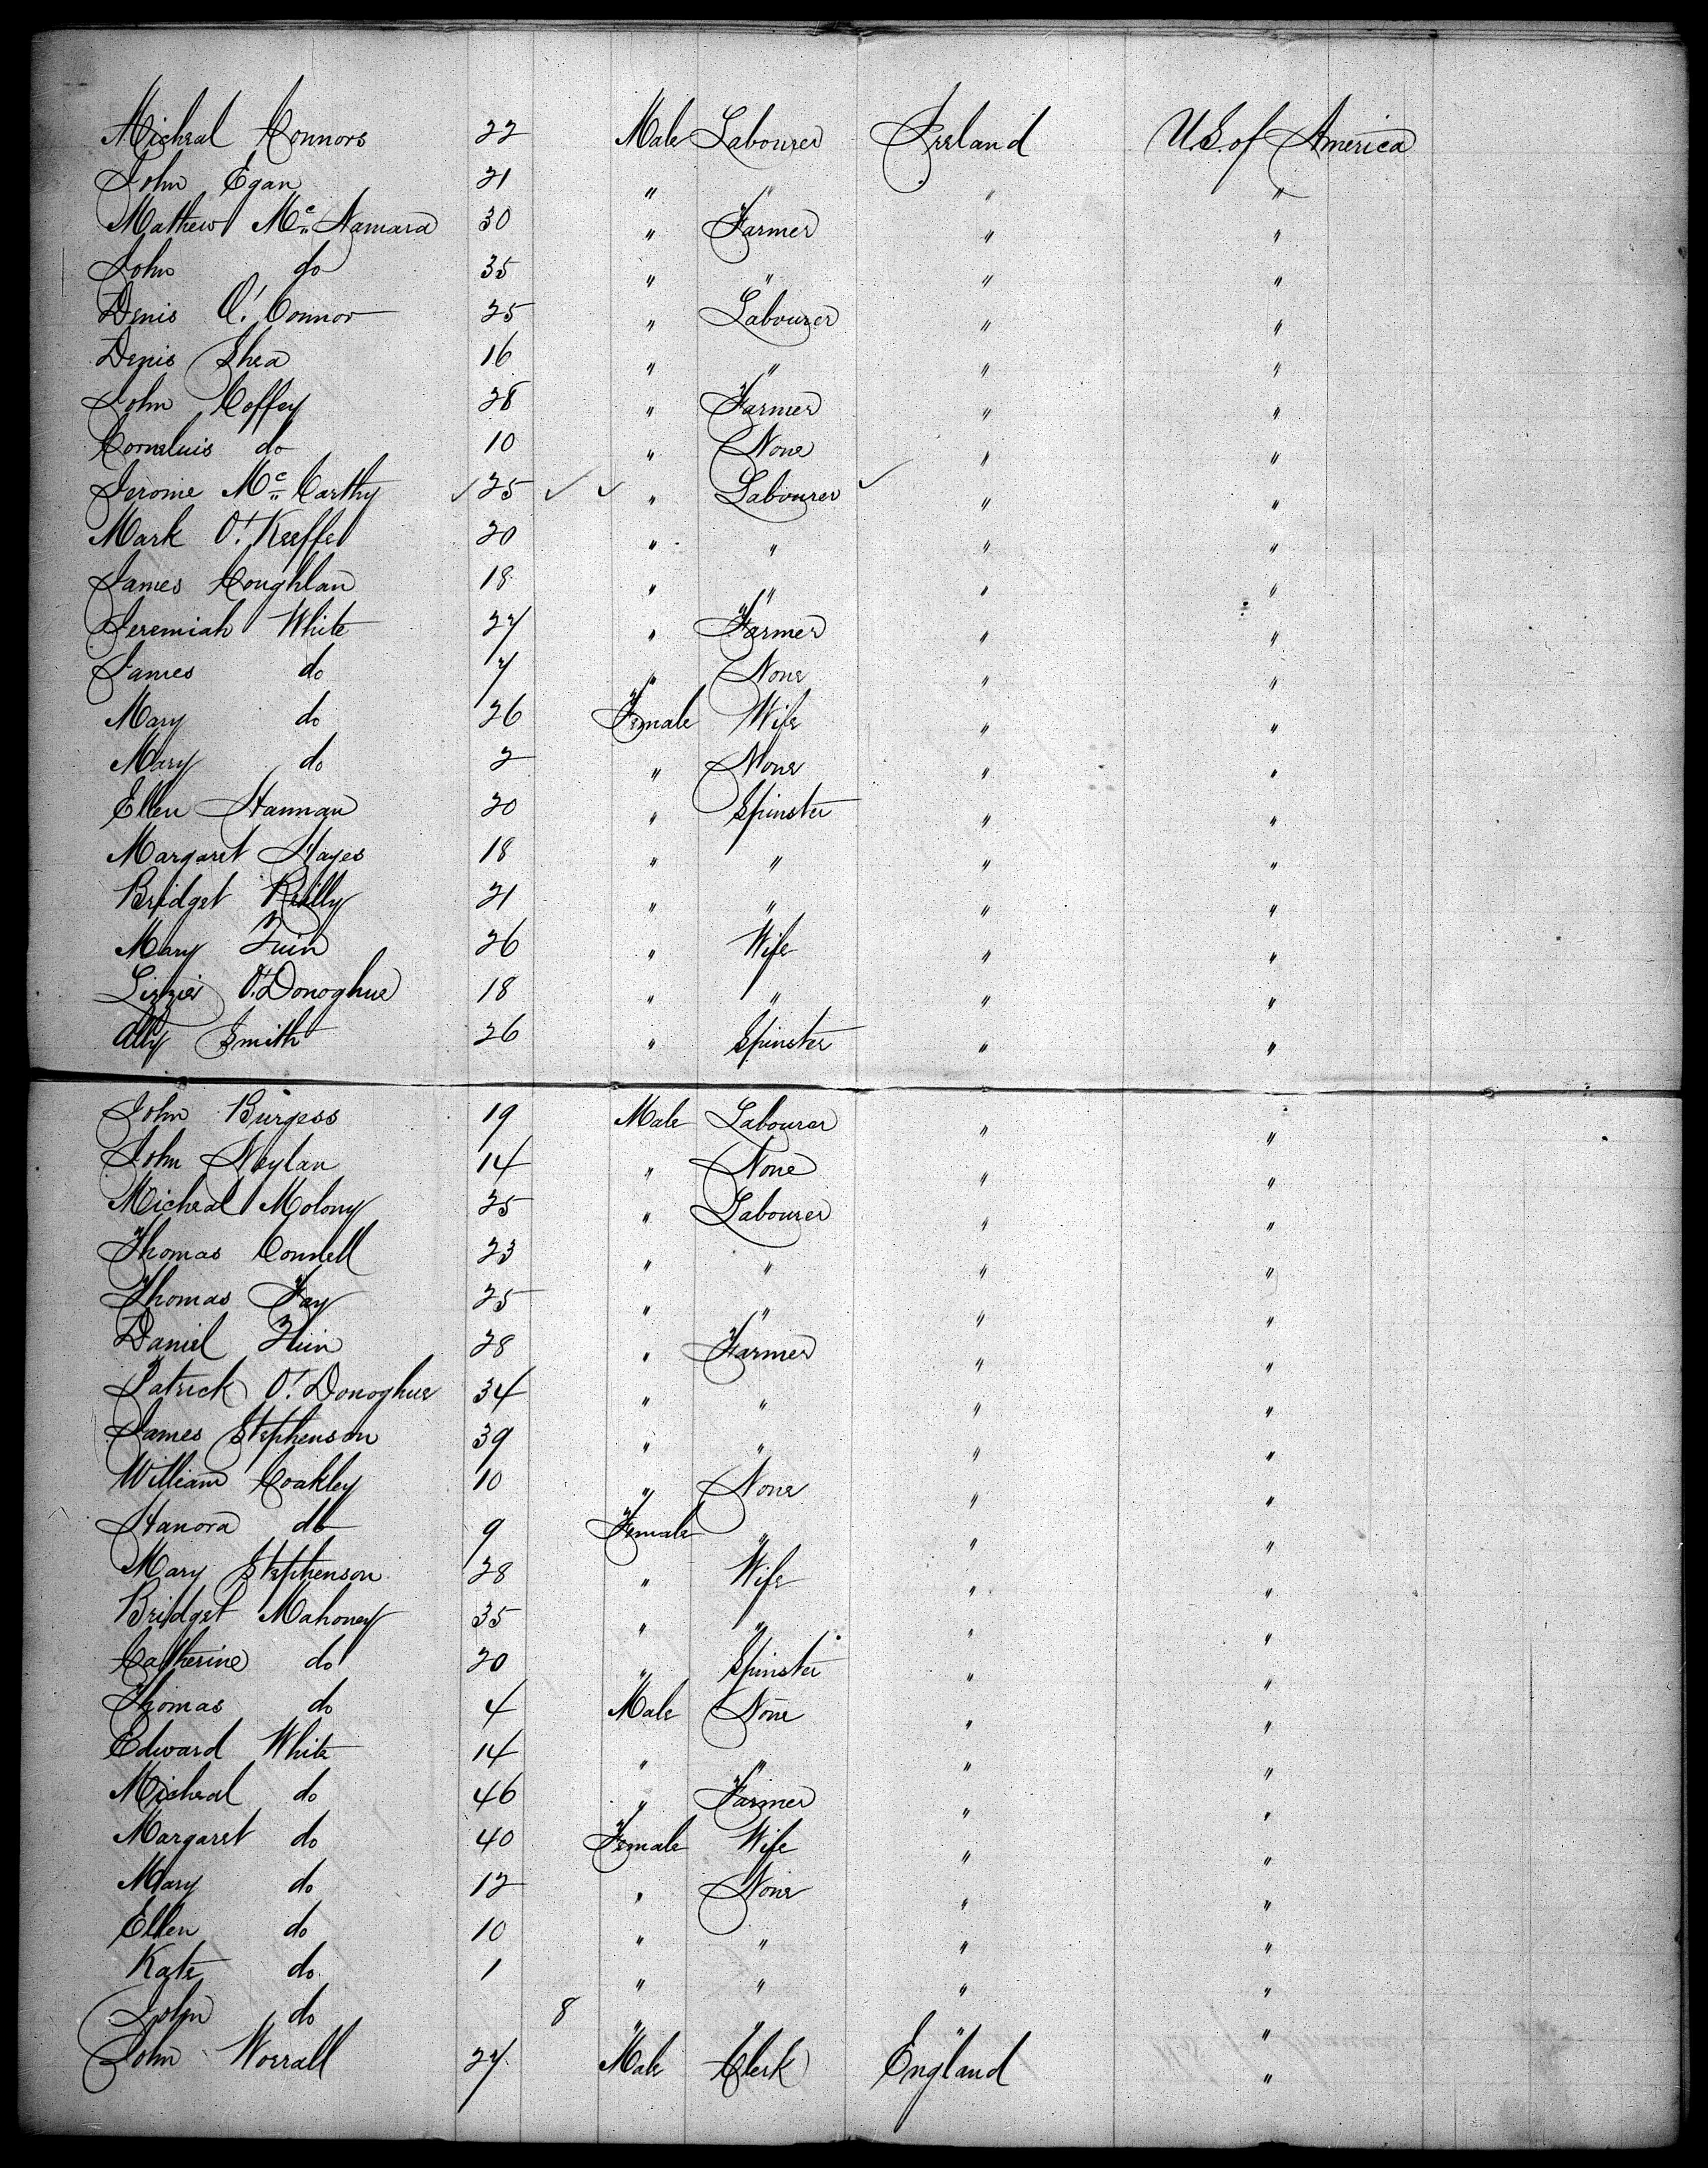 Micheal Connors 22 Male Labourer Ireland U.S. of America
John Egan 21 " " " "
Mathew Mc Namara 30 " Farmer " "
John do 35 " " " "
Denis O'Connor 25 " Labourer " "
Denis Shea 16 " " " "
John Coffey 28 " Farmer " "
Corneluis do 10 " None " "
Jerome Mc Carthy ✓ 25 ✓ ✓ " Labourer ✓ " "
Mark O'Keeffe 20 " " " "
James Coughlan 18 " " " "
Jeremiah White 27 " Farmer " "
James do 7 " None " "
Mary do 26 Female Wife " "
Mary do 2 " None " "
Ellen Hannan 20 " Spinster " "
Margaret Hayes 18 " " " "
Bridget Reilly 21 " " " "
Mary 26 " Wife " "
Lizzie O'Donoghue 18 " " " "
Ally Smith 26 " Spinster " "
John Burgess 19 Male Labourer " "
John Neylan 14 " None " "
Micheal Molony 25 " Labourer " "
Thomas Connell 23 " " " "
Thomas Fay 25 " " " "
Daniel 28 " Farmer " "
Patrick O'Donoghue 34 " " " "
James Stephenson 39 " " " "
William Coakley 10 " None " "
Hanora do 9 Female " " "
Mary Stephenson 28 " Wife " "
Bridget Mahoney 35 " " " "
Catherine do 20 " Spinster " "
Thomas do 4 Male None " "
Edward White 14 " " " "
Micheal do 46 " Farmer " "
Margaret do 40 Female Wife " "
Mary do 12 " None " "
Ellen do 10 " " " "
Kate do 1 " " " "
John do 8 " " " "
John Worrall 27 Male Clerk England "